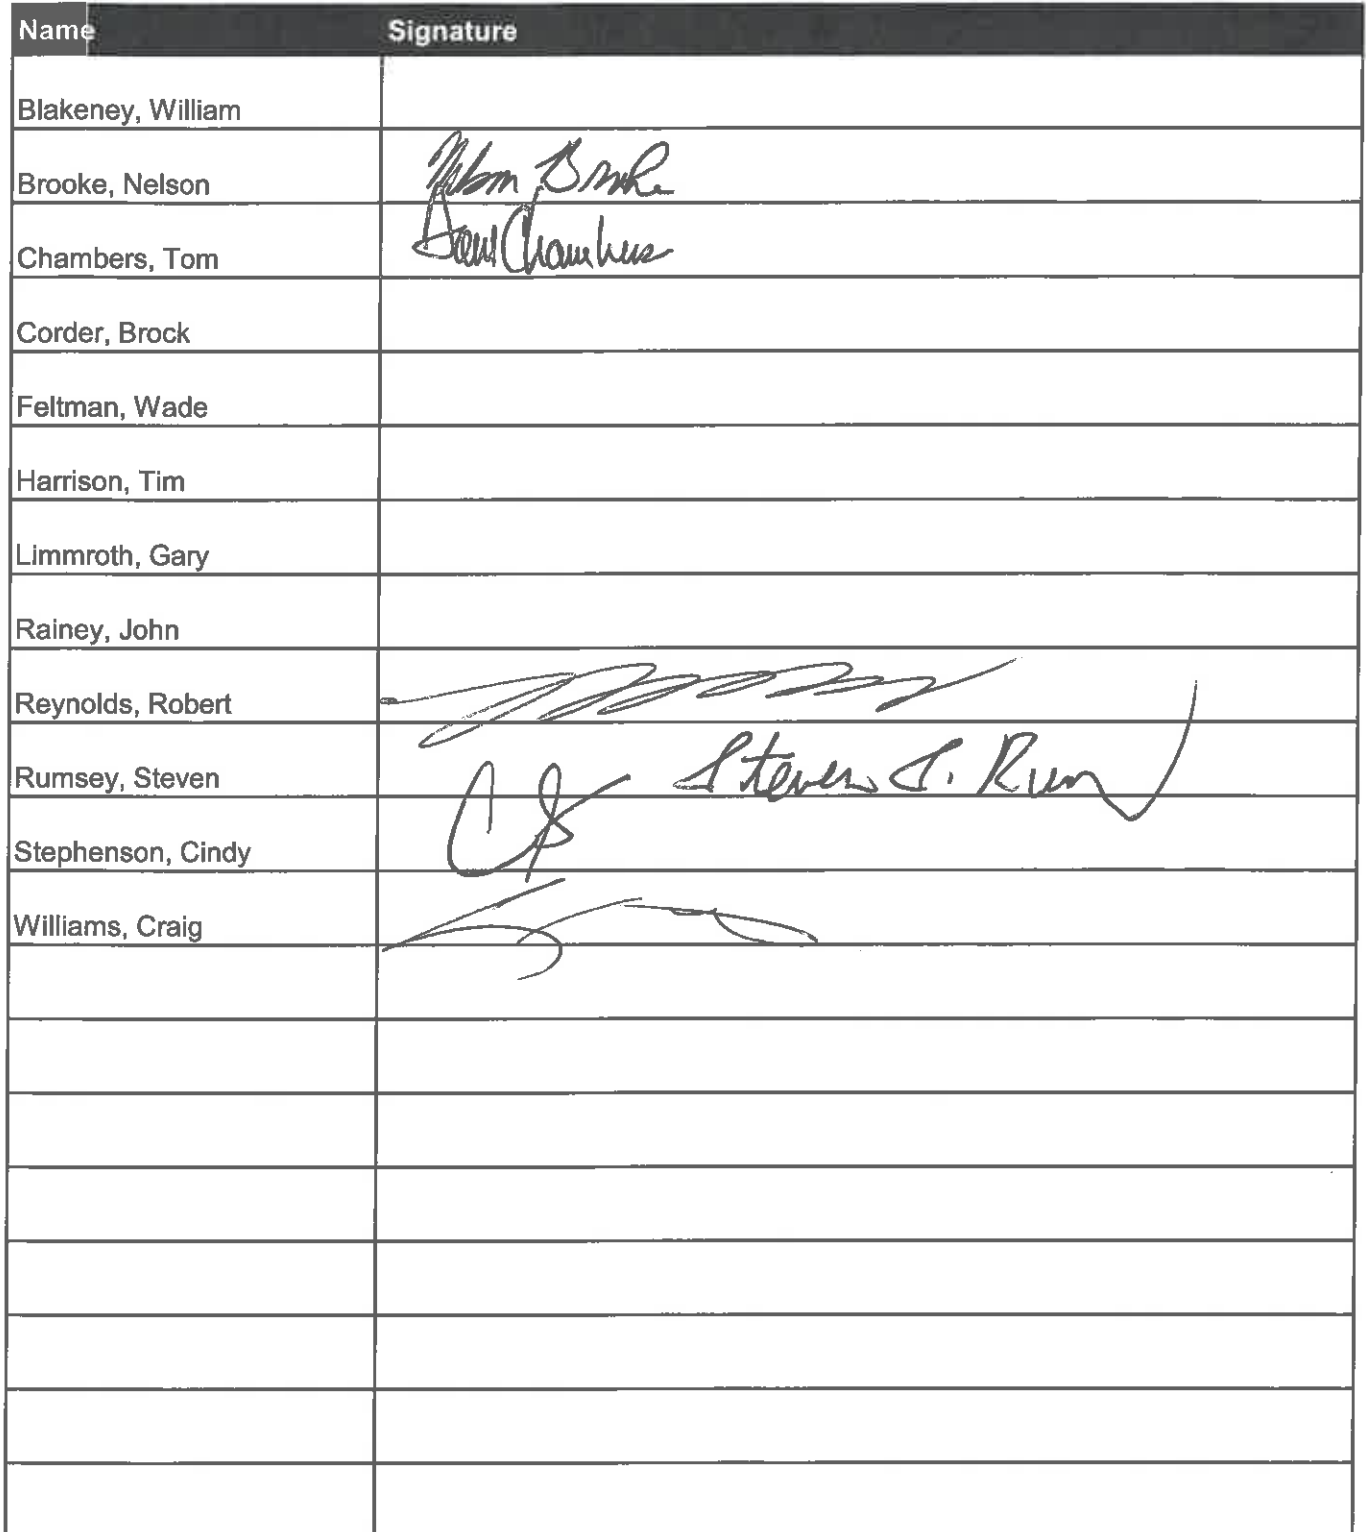 Name Signature
Blakeney, William
Brooke, Nelson Nelson Brooke
Chambers, Tom Tom Chambers
Corder, Brock
Feltman, Wade
Harrison, Tim
Limmroth, Gary
Rainey, John
Reynolds, Robert
Rumsey, Steven Steven J.
Stephenson, Cindy CS
Williams, Craig